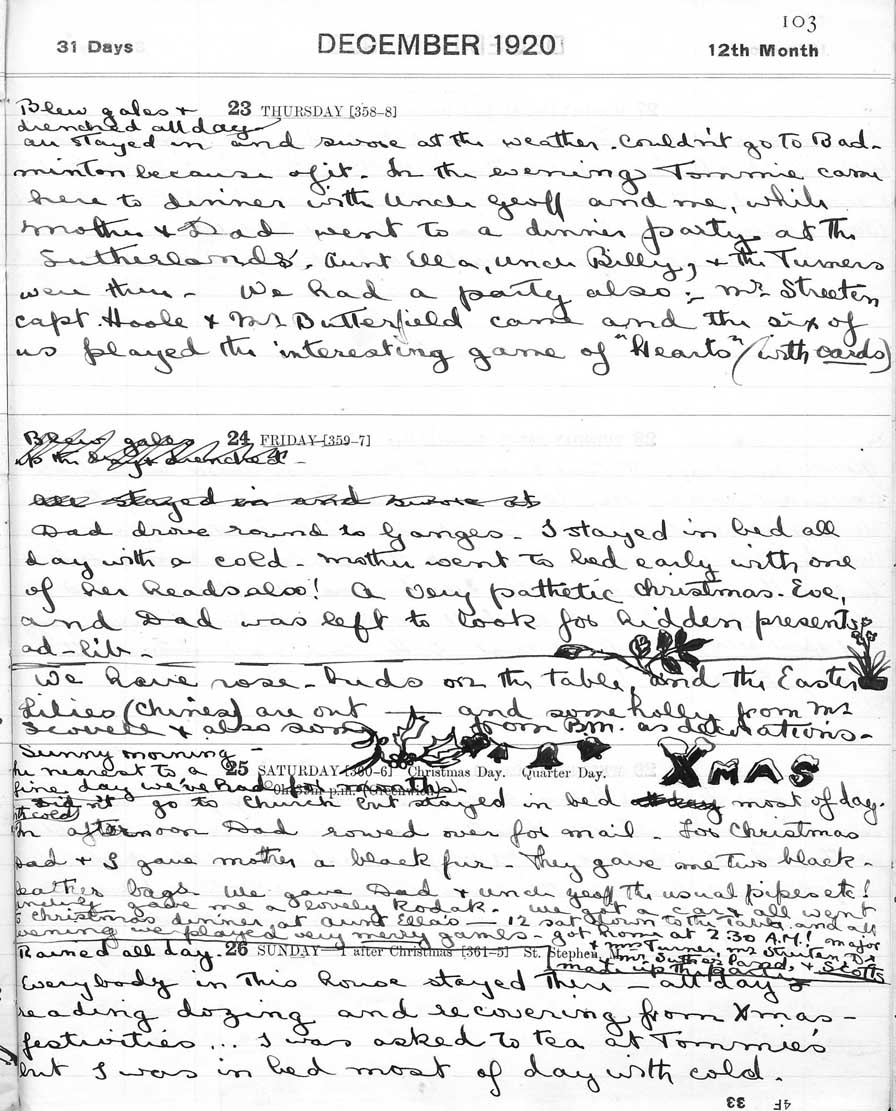 103
31 Days DECEMBER 1920 12th Month
Blew gales & 23 THURSDAY [358-8]
drenched all day
all stayed in and swore at the weather. Couldn't go to Bad-
minton because of it. In the evening Tommie came
here to dinner with Uncle Geoff and me, while
Mother & Dad went to a dinner party at the
Sutherlands. Aunt Ella, Uncle Billy, & the Turners
were there - We had a party also; - Mr Streeten,
Capt. Hoole & Mr Butterfield came and the six of
us played the interesting game of "Hearts" (with cards)
Blew gales 24 FRIDAY [359-7]
drenched -
all stayed in and swore at
Dad drove round to Ganges. I stayed in bed all
day with a cold. Mother went to bed early with one
of her heads also! A very pathetic Christmas-Eve,
and Dad was left to look for hidden presents
ad-lib -
We have rose-buds on the table, and the Easter
Lilies (Chinese) are out - and some holly from Mrs
Scovell & also some from B.M. as decorations -
Sunny morning -
the nearest to a 25 SATURDAY [360-6] Christmas Day. Quarter Day. XMAS
fine day we've had for months -
Didn't go to Church but stayed in bed most of day.
with cold
In afternoon Dad rowed over for mail - For Christmas
Dad & I gave Mother a black fur - They gave me two black-
leather bags. We gave Dad & Uncle Geoff the usual pipes etc!
gave me a lovely Kodak. We got a car & all went
to Christmas dinner at Aunt Ella's - 12 sat down to the table and all
evening we played very merry games - got home at 2.30 A.M.! Major
& Mrs Turner, Mr Streeten,
Rained all day. 26 SUNDAY-1 after Christmas [361-5] St. Stephen,
made up the party & Scotts
Everybody in this house stayed there - all day
reading dozing and recovering from Xmas -
festivities ... I was asked to tea at Tommie's
but I was in bed most of day with cold.
4F 33